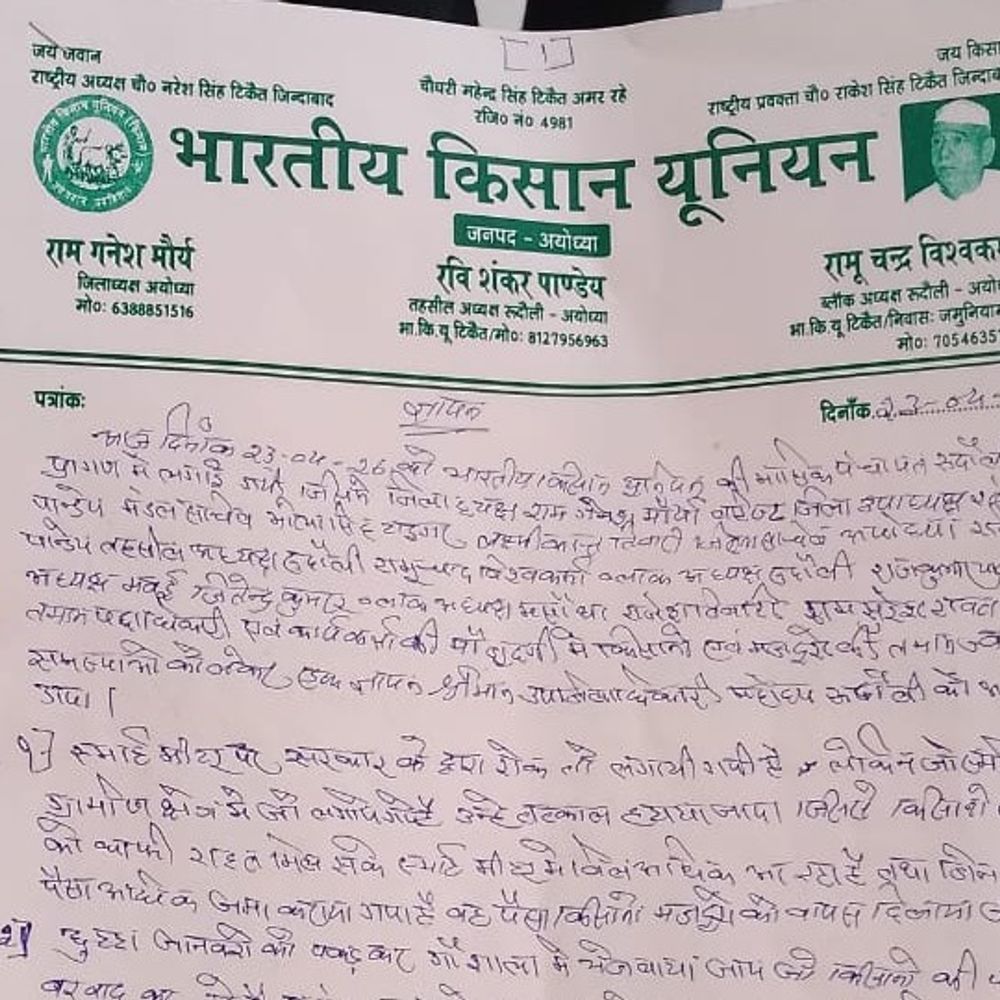 जय जवान
जय किसा
राष्ट्रीय अध्यक्ष चौ० नरेश सिंह टिकैत जिन्दाबाद
चौधरी महेन्द्र सिंह टिकैत अमर रहे
राष्ट्रीय प्रवक्ता चौ० राकेश सिंह टिकैत जिन्दाब
रजि० न० 4981
भारतीय किसान यूनियन
जनपद - अयोध्या
राम गनेश मौर्य
जिलाध्यक्ष अयोध्या
मो०: 6388851516
रवि शंकर पाण्डेय
तहसील अध्यक्ष रूदौली - अयोध्या
भा.कि.यू टिकैत/मो०: 8127956963
रामू चन्द्र विश्वक
ब्लॉक अध्यक्ष रूदौली - अयो
भा.कि.यू टिकैत/निवास: जमुनिया
मो०: 7054635
पत्रांक:
ज्ञापन
दिनाँक 23-04-
आज दिनाँक 23-04-26 को भारतीय किसान यूनियन की मासिक पंचायत
प्रागण में लगाई गयी जिसमे जिला अध्यक्ष राम गनेश मौर्या जिला उपाध्यक्ष
पाण्डेय मंडल सचिव टाइगर तिवारी
पाण्डेय तहसील अध्यक्ष रूदौली रामूचन्द्र विश्वकर्मा ब्लाक अध्यक्ष रूदौली राजकुमार
अध्यक्ष मवई जितेन्द्र कुमार ब्लाक अध्यक्ष
तमाम पदाधिकारी एवं कार्यकर्ता की में किसानो एवं मजदूरो की तमाम
समस्याओ को लेकर ज्ञापन श्रीमान उपजिलाधिकारी महोदय रूदौली को
१] स्मार्ट मीटर पर सरकार के द्वारा रोक तो लगायी गयी है लेकिन जो
ग्रामीण क्षेत्र मे जो लगाये गये है उन्हे तत्काल हटाया जाय जिससे किसानो
को काफी राहत मिल सके स्मार्ट मीटर मे बिल अधिक आ रहा है तथा जिन
पैसा अधिक जमा कराया गया है वह पैसा किसानो मजदूरो को वापस दिलाया
२] छुट्टा जानवरो को पकड़ कर गौशाला मे भेजवाया जाय जो किसानो की
बरबाद कर